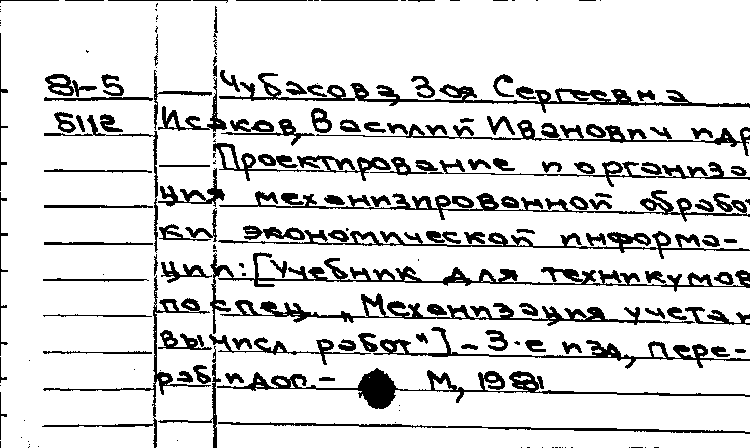 81-5 Чубасова, Зоя Сергеевна
5112 Исаков, Василий Иванович и др
Проектирование и организа
ция механизированной обработ
ки экономической информа-
ции: [Учебник для техникумов
по спец. „Механизация учета и
вычисл. работ"] - 3-е изд., пере-
раб. и доп. - М., 1981